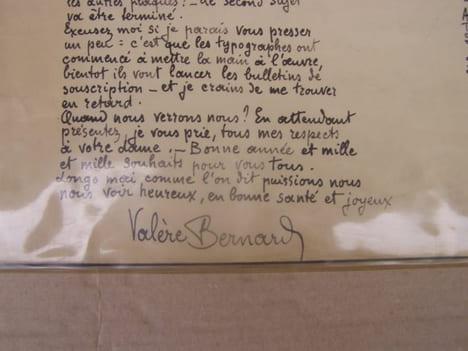 les autres plaques? - Le second sujet
va être terminé.
Excusez moi si je parais vous presser
un peu : c'est que les typographes ont
commencé à mettre la main à l'œuvre,
bientot ils vont lancer les bulletins de
souscription - et je crains de me trouver
en retard.
Quand nous verrons nous? En attendant
présentez, je vous prie, tous mes respects
à votre dame. - Bonne année et mille
et mille souhaits pour vous tous.
Longo mai comme l'on dit puissions nous
nous voir heureux, en bonne santé et joyeux
Valère Bernard